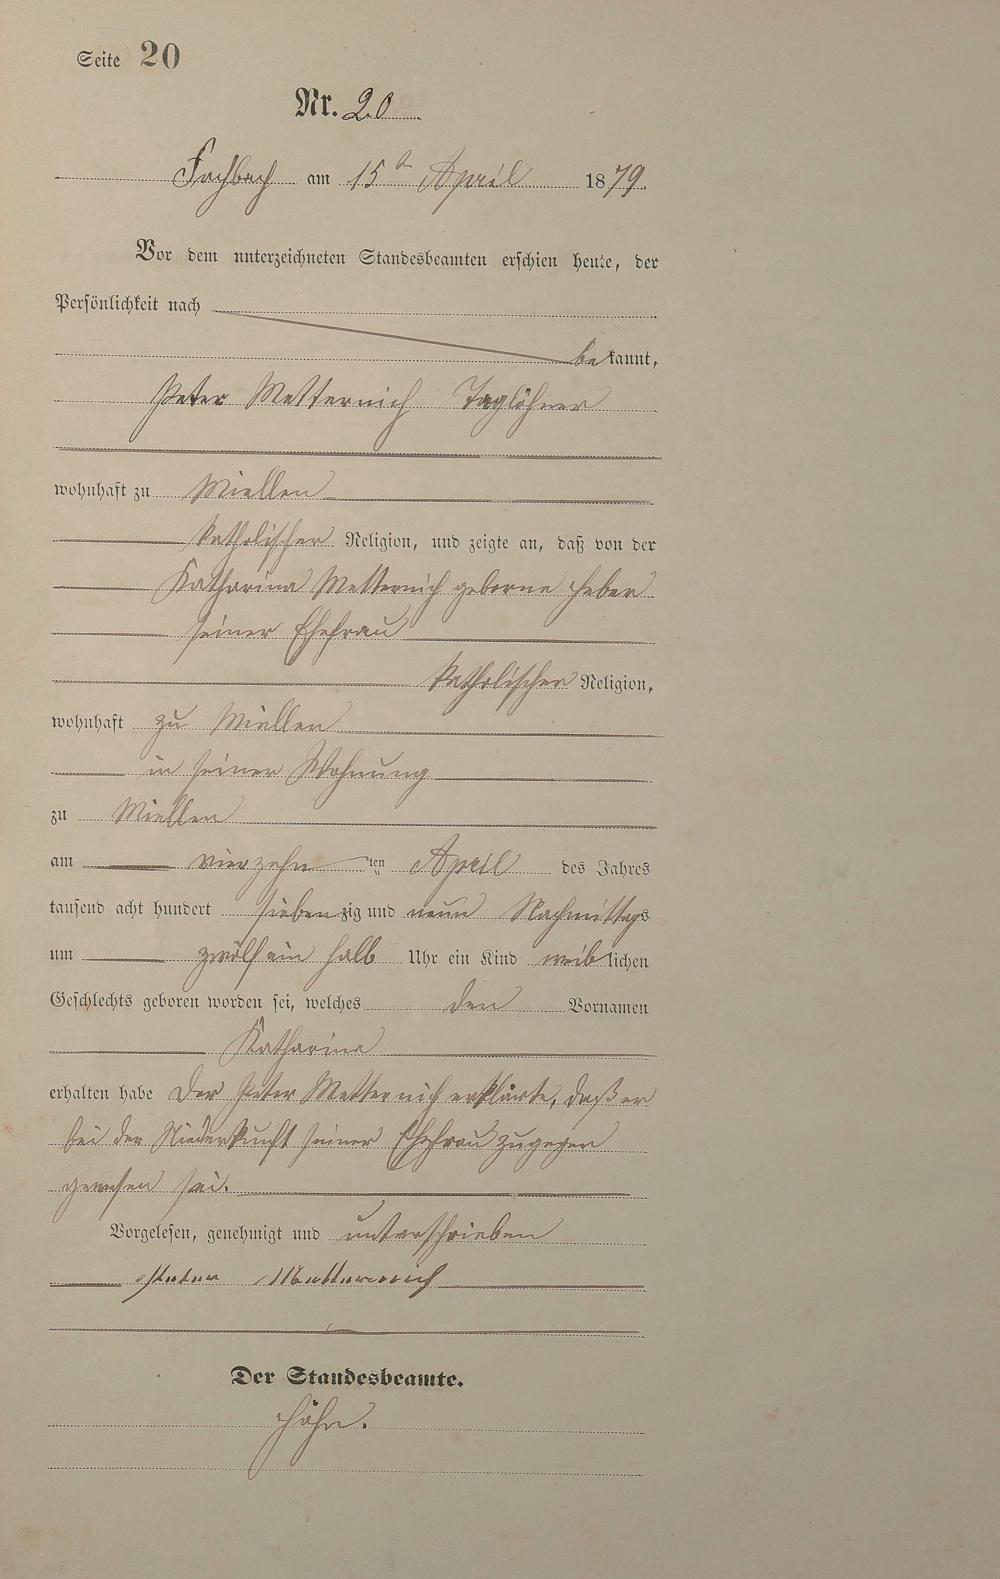 Seite 20
Nr. 20
Fachbach am 15ten April 1879.
Vor dem unterzeichneten Standesbeamten erschien heute, der
Persönlichkeit nach
bekannt,
Peter Metternich Taglöhner
wohnhaft zu Miellen
katholischer Religion, und zeigte an, daß von der
Katharina Metternich geborne Heben
seiner Ehefrau
katholischer Religion,
wohnhaft zu Miellen
in seiner Wohnung
zu Miellen
am vierzehnten April des Jahres
tausend acht hundert siebenzig und neun Nachmittags
um zwölf ein halb Uhr ein Kind weiblichen
Geschlechts geboren worden sei, welches den Vornamen
Katharina
erhalten habe Der Peter Metternich erklärte, daß er
bei der Niederkunft seiner Ehefrau zugegen
gewesen sei.
Vorgelesen, genehmigt und unterschrieben
Peter Metternich
Der Standesbeamte.
Höhn.